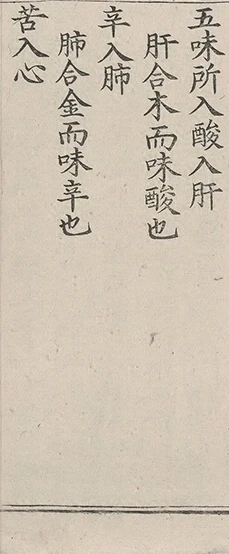 五味所入酸入肝
肝合木而味酸也
辛入肺
肺合金而味辛也
苦入心